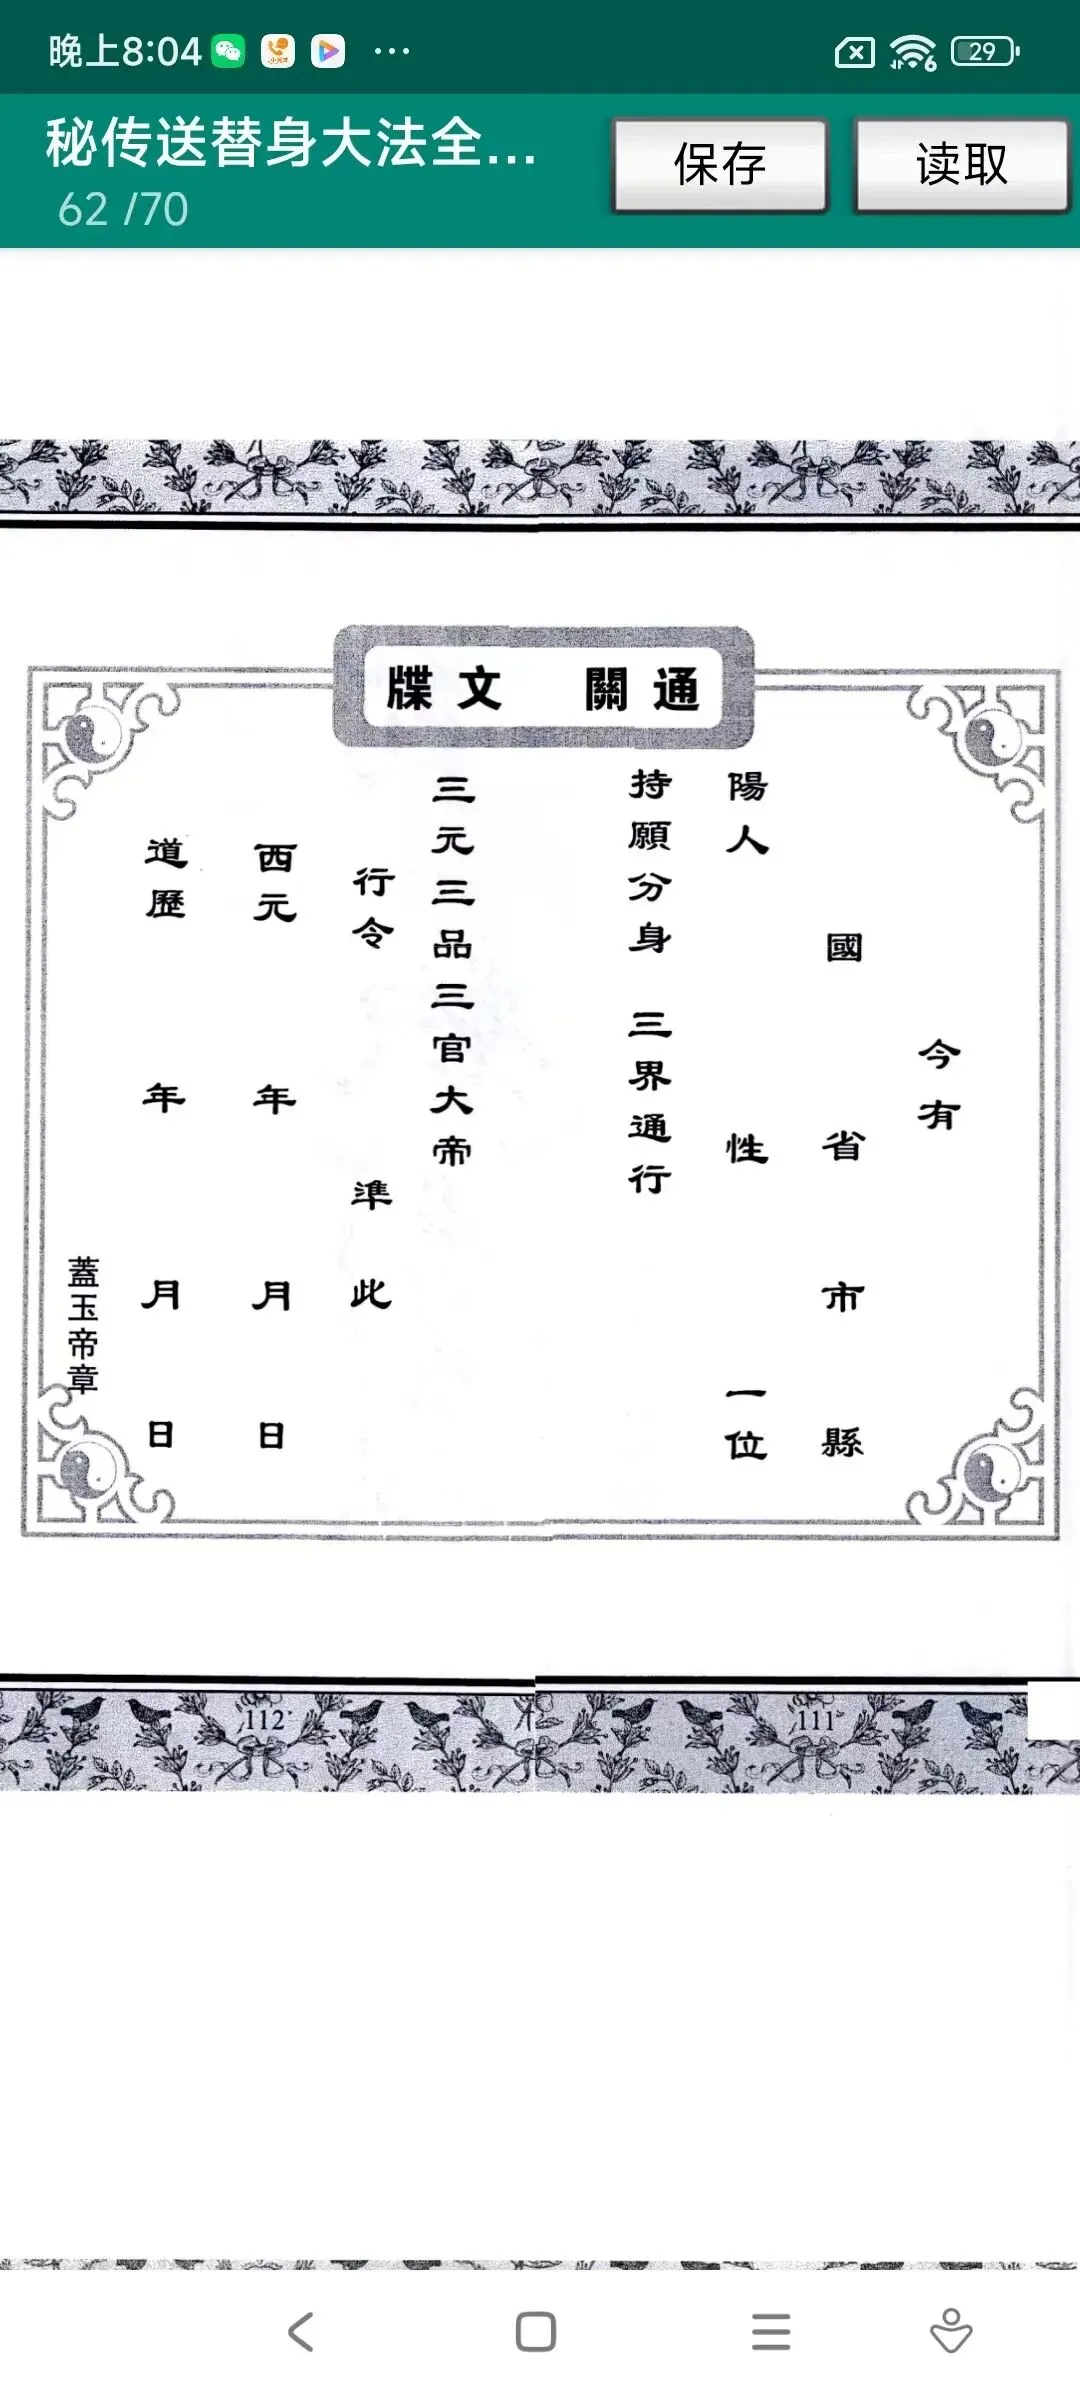 晚上8:04
29
秘传送替身大法全...
62 /70
保存
读取
通關 文牒
今有
國 省 市 縣
陽人 性 一位
持願分身 三界通行
三元三品三官大帝
行令 準此
西元 年 月 日
道歷 年 月 日
蓋玉帝章
112
111